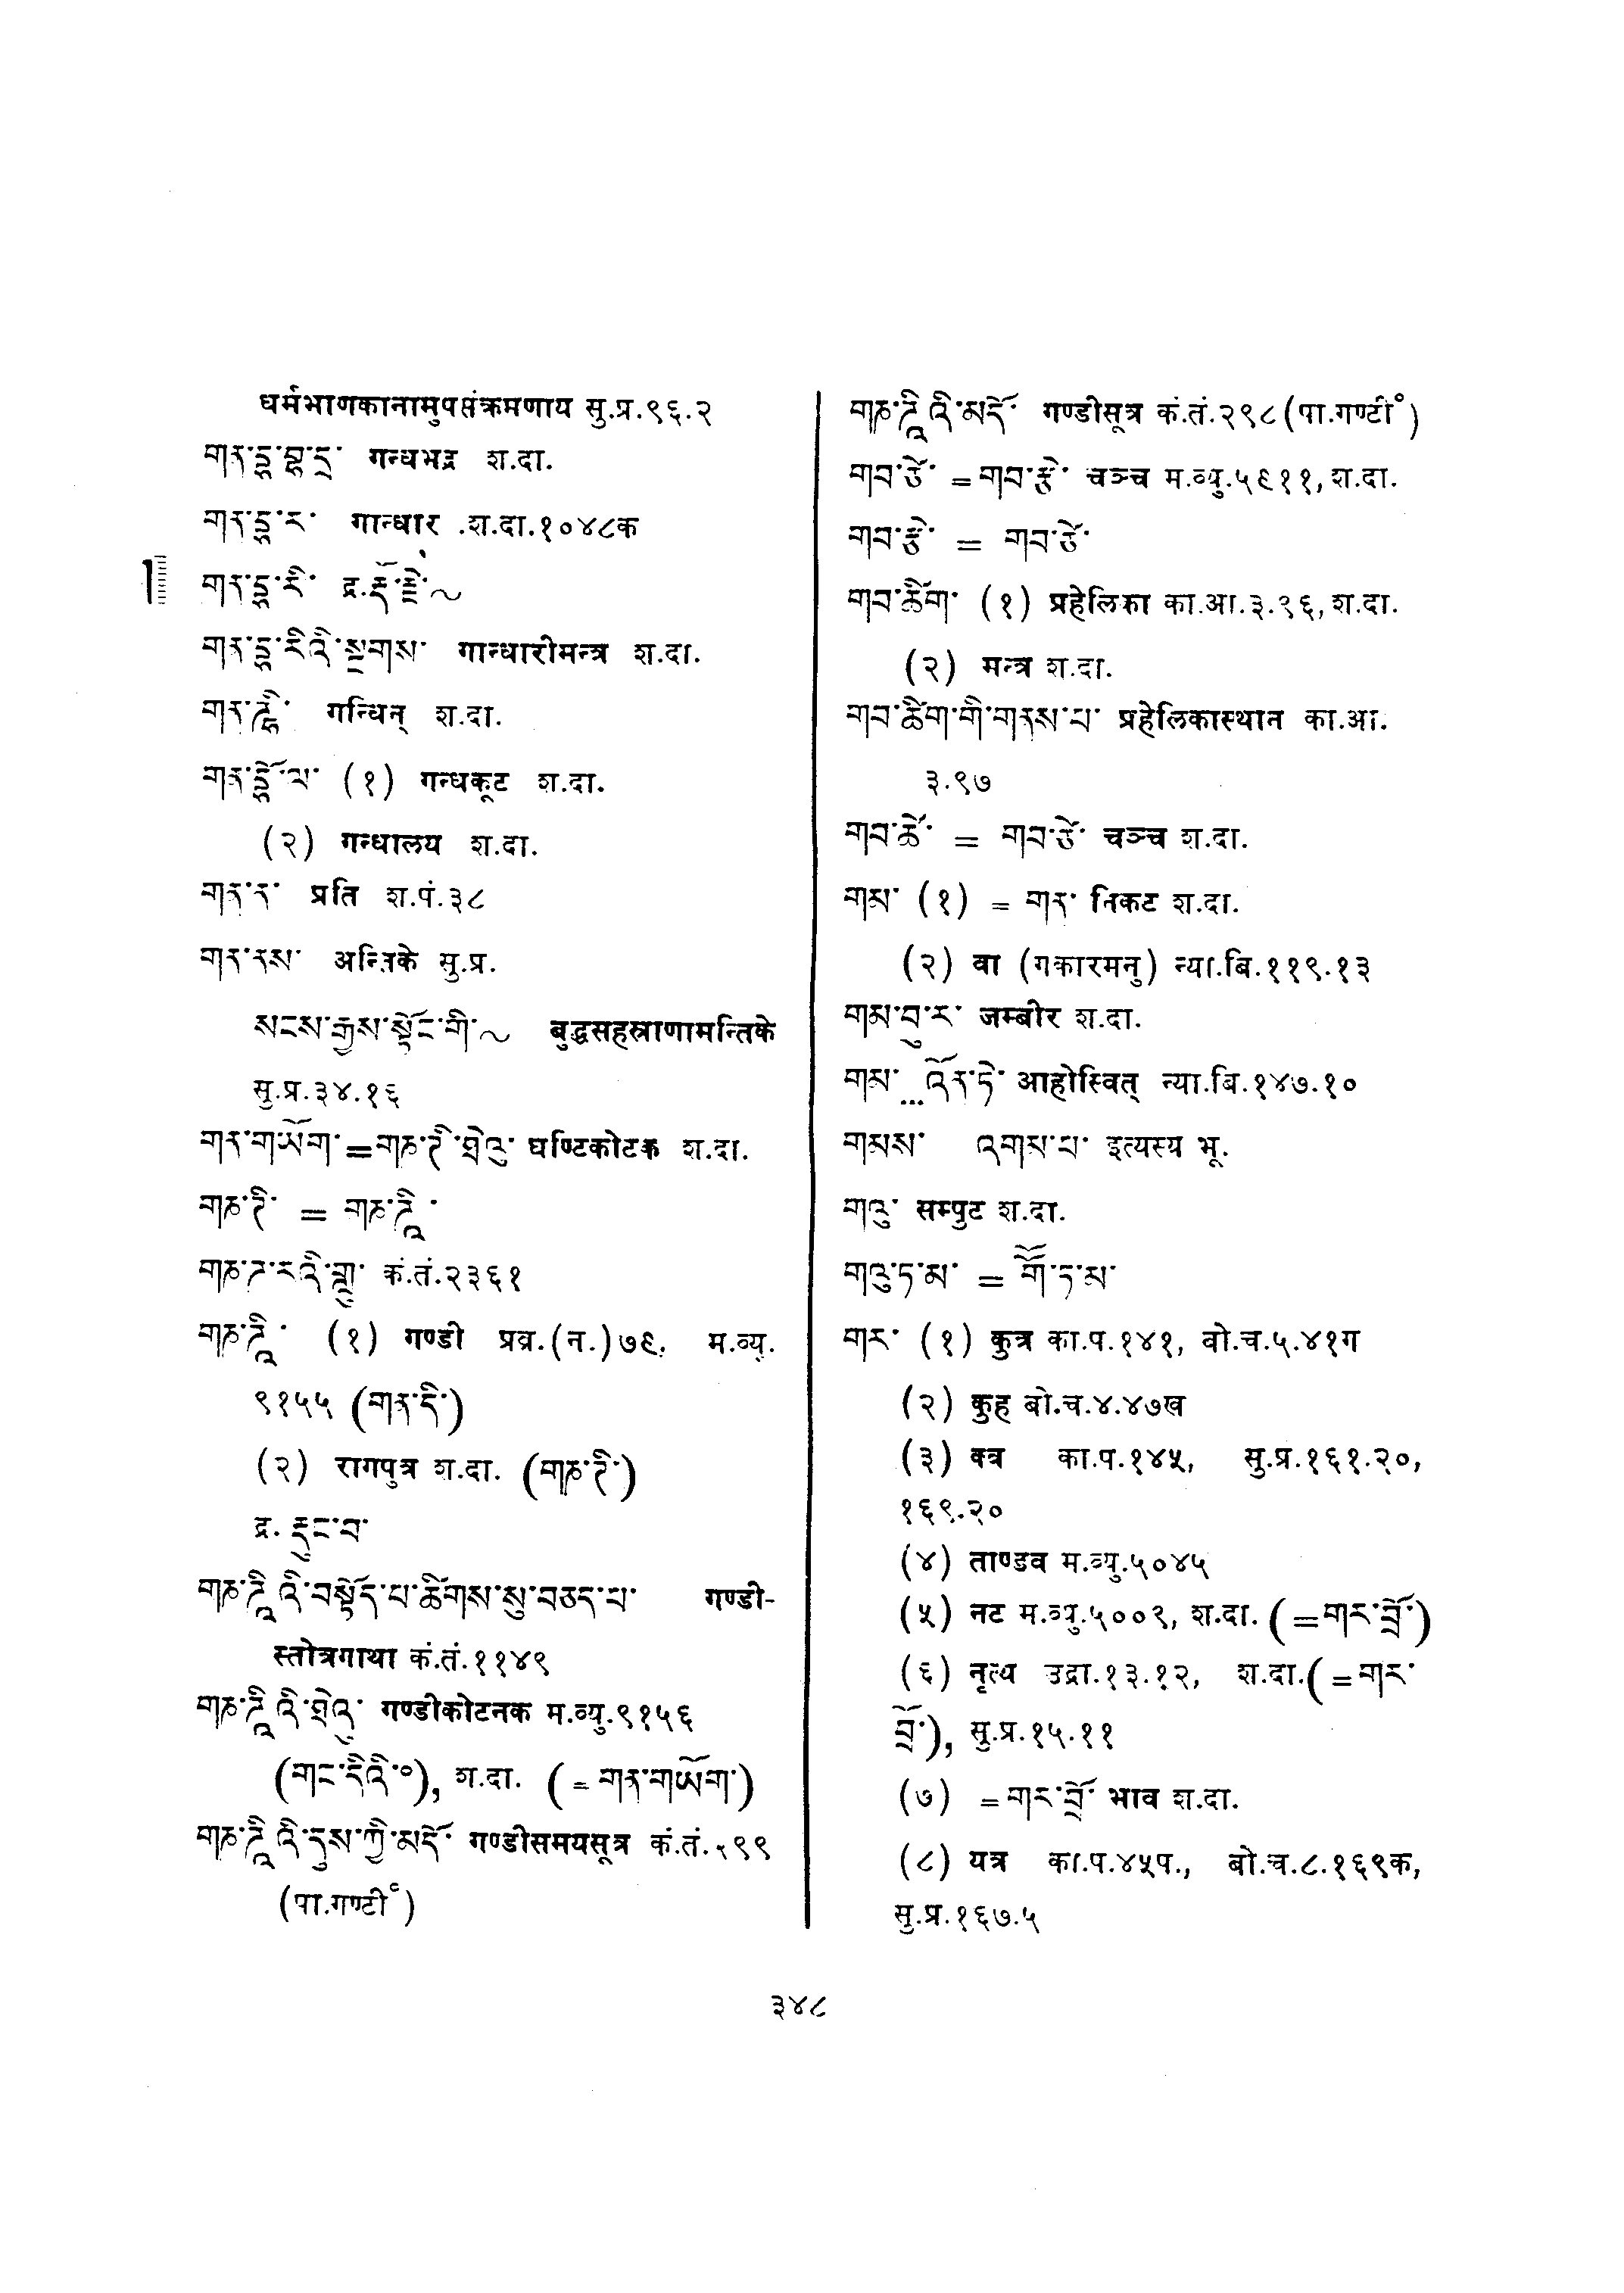 धर्मभाणकानामुपसंक्रमणाय सु.प्र.९६.२
གན་དྷ་བྷ་དྲ་ गन्धभद्र श.दा.
གན་དྷ་ར་ गान्धार .श.दा.१०४८क
གན་དྷ་རི་ द्र.རྡོ་རྗེ་~
གན་དྷ་རིའི་སྔགས་ गान्धारीमन्त्र श.दा.
གན་དྷི་ गन्धिन् श.दा.
གན་དྷོ་ལ་ (१) गन्धकूट श.दा.
(२) गन्धालय श.दा.
གན་ན་ प्रति श.पं.३८
གན་ནས་ अन्तिके सु.प्र.
སངས་རྒྱས་སྟོང་གི་~ बुद्धसहस्राणामन्तिके
सु.प्र.३४.१६
གན་གཡོག་=གཎ་ཌི་བྲེའུ་ घण्टिकोटक श.दा.
གཎ་ཌི་ = གཎ་ཌཱི་
གཎ་ཌ་རའི་གླུ་ कं.तं.२३६१
གཎ་ཌཱི་ (१) गण्डी प्रव्र.(न.)७९. म.व्यु.
९१५५ (གན་དི་)
(२) रागपुत्र श.दा. (གཎ་ཌི་)
द्र. རྡུང་བ་
གཎ་ཌཱི་འི་བསྟོད་པ་ཚིགས་སུ་བཅད་པ་ गण्डी-
स्तोत्रगाथा कं.तं.११४९
གཎ་ཌཱི་འི་བྲེའུ་ गण्डीकोटनक म.व्यु.९१५६
(གང་དིའི་°), श.दा. (=གན་གཡོག་)
གཎ་ཌཱི་འི་དུས་ཀྱི་མདོ་ गण्डीसमयसूत्र कं.तं.२९९
(पा.गण्टी°)
གཎ་ཌཱི་འི་མདོ་ गण्डीसूत्र कं.तं.२९८(पा.गण्टी°)
གབ་ཙེ་ =གབ་རྩེ་ चञ्च म.व्यु.५९११,श.दा.
གབ་རྩེ་ = གབ་ཙེ་
གབ་ཚིག་ (१) प्रहेलिका का.आ.३.९६,श.दा.
(२) मन्त्र श.दा.
གབ་ཚིག་གི་གནས་པ་ प्रहेलिकास्थान का.आ.
३.९७
གབ་ཚེ་ = གབ་ཙེ་ चञ्च श.दा.
གམ་ (१) = གན་ निकट श.दा.
(२) वा (गकारमनु) न्या.बि.११९.१३
གམ་བུ་ར་ जम्बीर श.दा.
གམ་ ...འོན་ཏེ་ आहोस्वित् न्या.बि.१४७.१०
གམས་ འགམ་པ་ इत्यस्य भू.
གའུ་ सम्पुट श.दा.
གའུ་ཏ་མ་ = གཽ་ཏ་མ་
གར་ (१) कुत्र का.प.१४१, बो.च.५.४१ग
(२) कुह बो.च.४.४७ख
(३) क्व का.प.१४५, सु.प्र.१६१.२०,
१६९.२०
(४) ताण्डव म.व्यु.५०४५
(५) नट म.व्यु.५००९, श.दा. (=གར་བྲོ་)
(६) नृत्य उद्रा.१३.१२, श.दा.(=གར་
བྲོ་), सु.प्र.१५.११
(७) =གར་བྲོ་ भाव श.दा.
(८) यत्र का.प.४५प., बो.च.८.१६९क,
सु.प्र.१६७.५
३४८